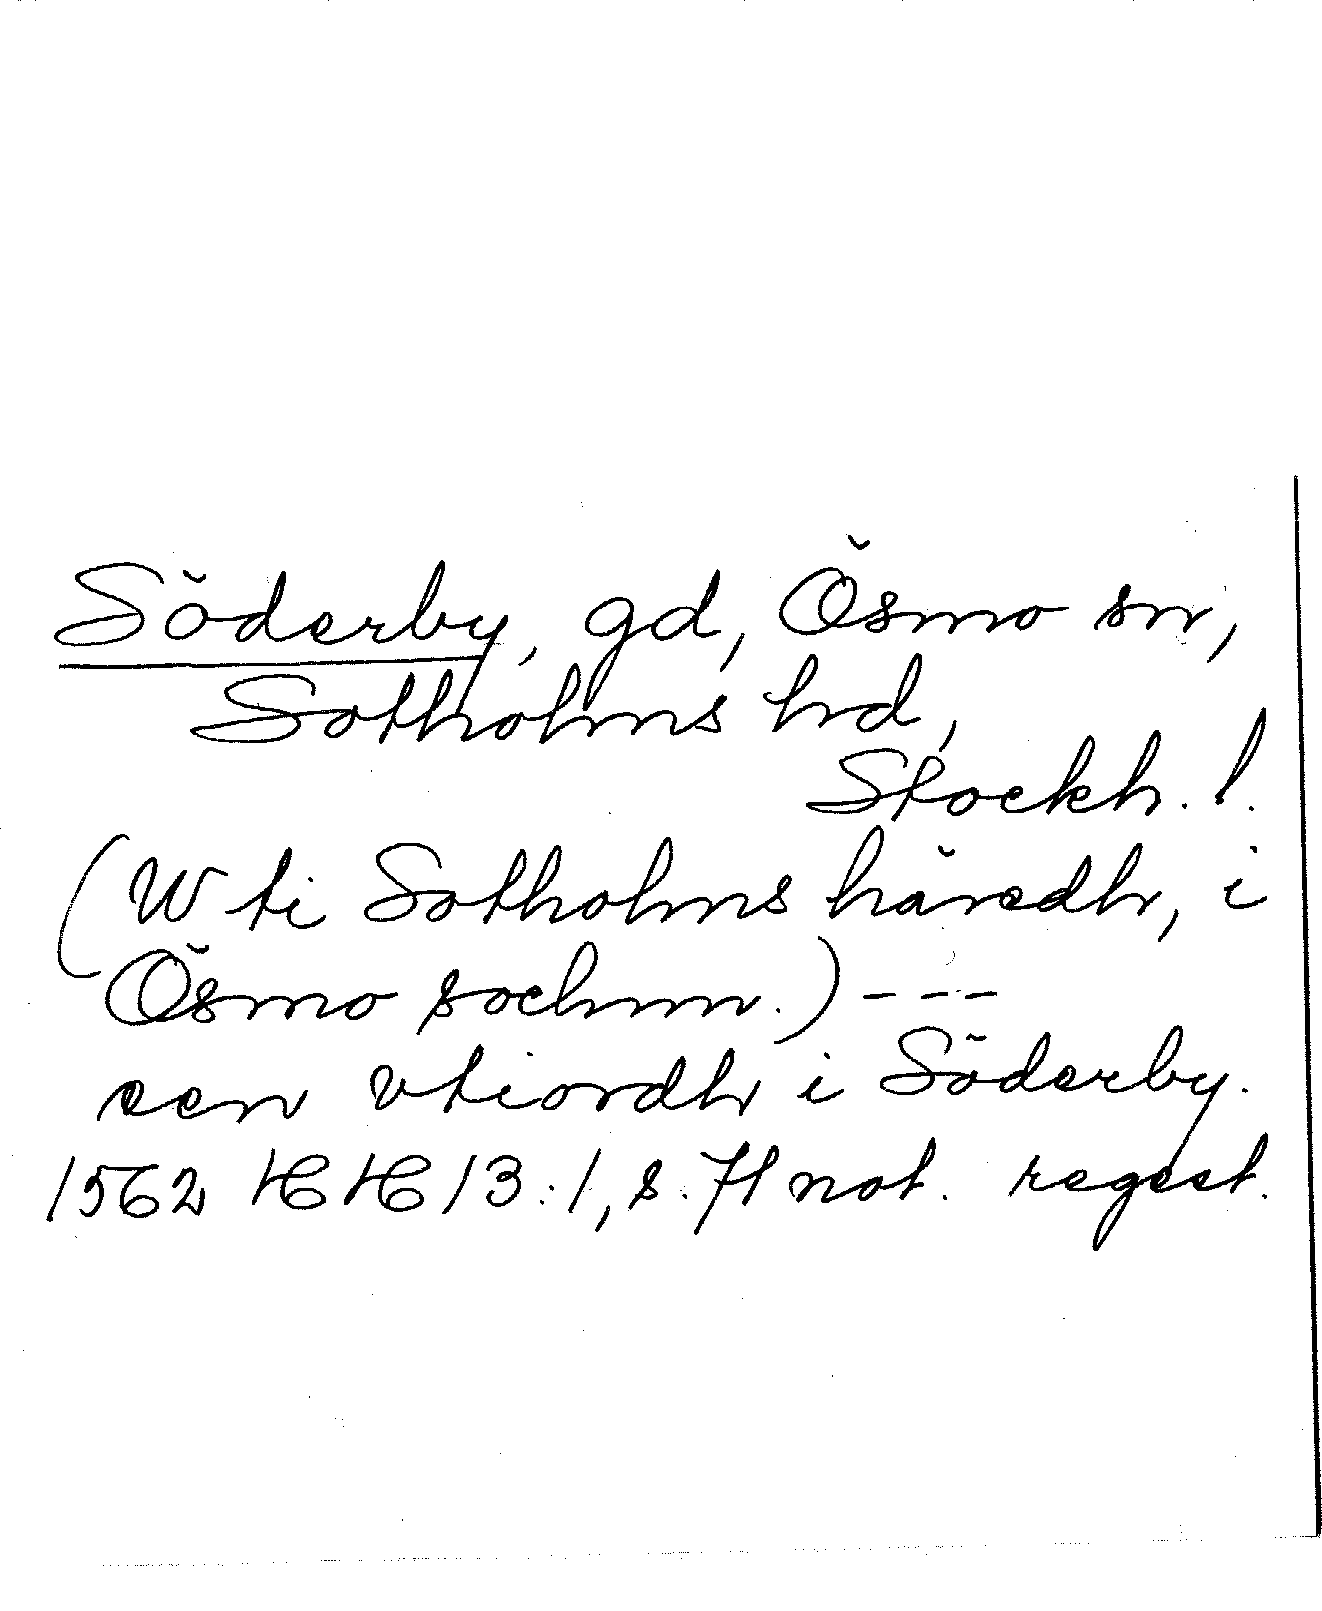 Söderby, gd, Ösmo sn,
Sotholms hd,
Stockh. l.
(W ti Sotholms häredh, i
Ösmo sochnn.) - - -
een vtiordh i Söderby.
1562 HH 13:1, s. 71 not. regest.